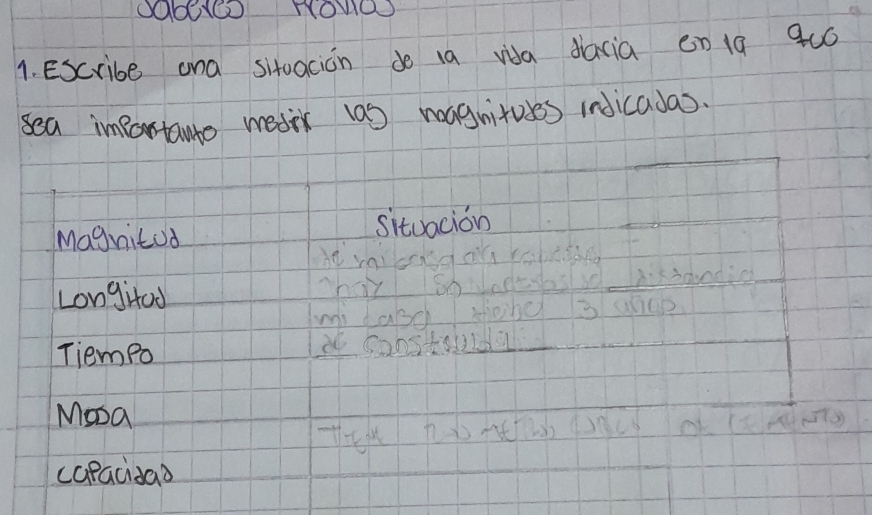 Saberes Previos
1. Escribe una situación de la vida diaria en la que
sea importante medir las magnitudes indicadas.
Magnitud Situación
de mi casa
Longitud hay 50 distancia
mi casa tiene 3 años
Tiempo de construida
Masa
Capacidad